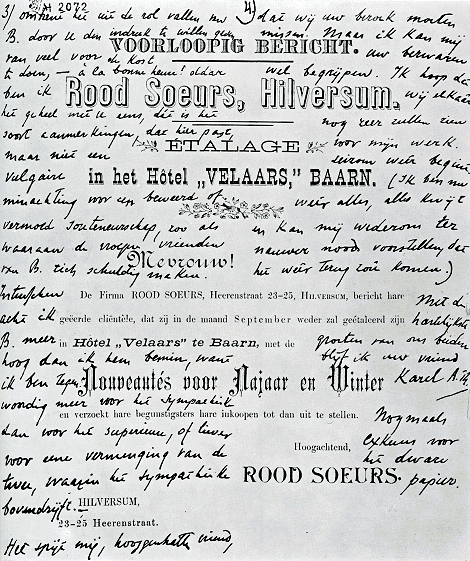 3)
2072
omtrent het uit de rol vallen van
B. door U den indruk te willen geven
van veel voor de kost
te doen, — à la bonne heure! daar
ben ik
het geheel met U eens, dit is het
soort aanmerkingen, dat hier past,
maar niet een
vulgaire
minachting voor een beweerd of
vermoed Souteneurschap, zoo als
waaraan de vroegere vrienden
van B. zich schuldig maken.
Intusschen
acht ik
B. meer
hoog dan ik hem bemin, want
ik ben tegen-
woordig meer voor het Sympathieke
dan voor het superieure, of liever
voor eene vermenging van de
twee, waarin het sympathieke
bovendrijft.
Het spijt mij, hooggeachte vriend,
4)
dat wij uw bezoek moeten
missen. Maar ik kan mij
uw bezwaren
wel begrijpen. Ik hoop dat
wij elkaar
nog zullen zien
voor mijn werk-
seizoen weer begint
(Ik ben nu
weer alles, alles kwijt
en kan mij wederom ter
nauwer nood voorstellen, dat
het weer terug zou komen.)
Met de
hartelijkste
groeten van ons beiden
blijf ik uw vriend
Karel A.Th.
Nogmaals
excuus voor
het dwaze
papier.
VOORLOOPIG BERICHT.
Rood Soeurs, Hilversum.
ÉTALAGE
in het Hôtel „VELAARS,” BAARN.
Mevrouw!
De Firma ROOD SOEURS, Heerenstraat 23-25, HILVERSUM, bericht hare
geëerde cliëntèle, dat zij in de maand September weder zal geëtaleerd zijn
in Hôtel „Velaars” te Baarn, met de
Nouveautés voor Najaar en Winter
en verzoekt hare begunstigsters hare inkoopen tot dan uit te stellen.
Hoogachtend,
ROOD SOEURS.
HILVERSUM,
23-25 Heerenstraat.